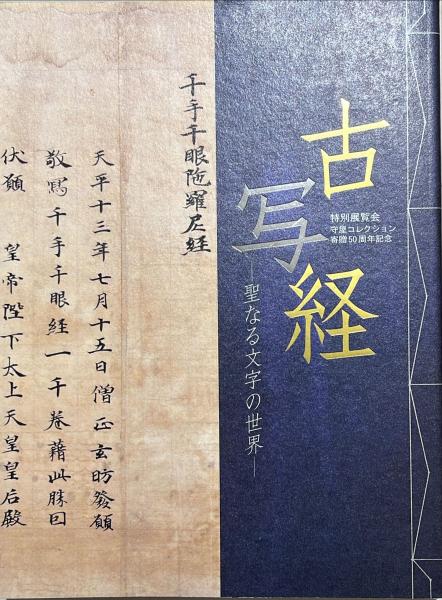 古写経
特別展覧会
守屋コレクション
寄贈50周年記念
―聖なる文字の世界―
千手千眼陀羅尼経
天平十三年七月十五日僧正玄昉發願
敬寫千手千眼経一千巻藉此勝因
伏願 皇帝陛下太上天皇皇后殿